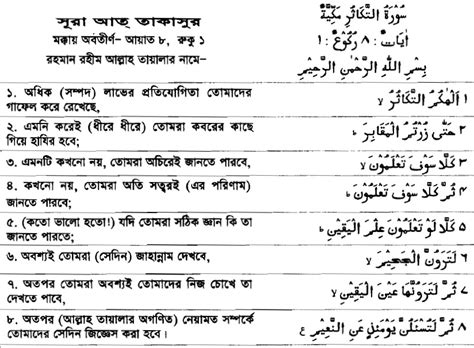 সূরা আত্ তাকাসুর
মক্কায় অবতীর্ণ- আয়াত ৮, রুকু ১
রহমান রহীম আল্লাহ তায়ালার নামে-
سُوْرَةُ التَّكَاثُرِ مَكِّيَّةٌ
اٰيَاتُ : ٨ رُكُوْعُ : ١
بِسْمِ اللّٰهِ الرَّحْمٰنِ الرَّحِيْمِ
১. অধিক (সম্পদ) লাভের প্রতিযোগিতা তোমাদের
গাফেল করে রেখেছে,
١ اَلْهٰكُمُ التَّكَاثُرُ لا
২. এমনি করেই (ধীরে ধীরে) তোমরা কবরের কাছে
গিয়ে হাযির হবে;
٢ حَتّٰى زُرْتُمُ الْمَقَابِرَ ط
৩. এমনটি কখনো নয়, তোমরা অচিরেই জানতে পারবে,
٣ كَلَّا سَوْفَ تَعْلَمُوْنَ لا
৪. কখনো নয়, তোমরা অতি সত্বরই (এর পরিণাম)
জানতে পারবে;
٤ ثُمَّ كَلَّا سَوْفَ تَعْلَمُوْنَ ط
৫. (কতো ভালো হতো!) যদি তোমরা সঠিক জ্ঞান কি তা
জানতে পারতে;
٥ كَلَّا لَوْ تَعْلَمُوْنَ عِلْمَ الْيَقِيْنِ ط
৬. অবশ্যই তোমরা (সেদিন) জাহান্নাম দেখবে,
٦ لَتَرَوُنَّ الْجَحِيْمَ لا
৭. অতপর তোমরা অবশ্যই তোমাদের নিজ চোখে তা
দেখতে পাবে,
٧ ثُمَّ لَتَرَوُنَّهَا عَيْنَ الْيَقِيْنِ لا
৮. অতপর (আল্লাহ তায়ালার অগণিত) নেয়ামত সম্পর্কে
তোমাদের সেদিন জিজ্ঞেস করা হবে।
٨ ثُمَّ لَتُسْئَلُنَّ يَوْمَئِذٍ عَنِ النَّعِيْمِ ع